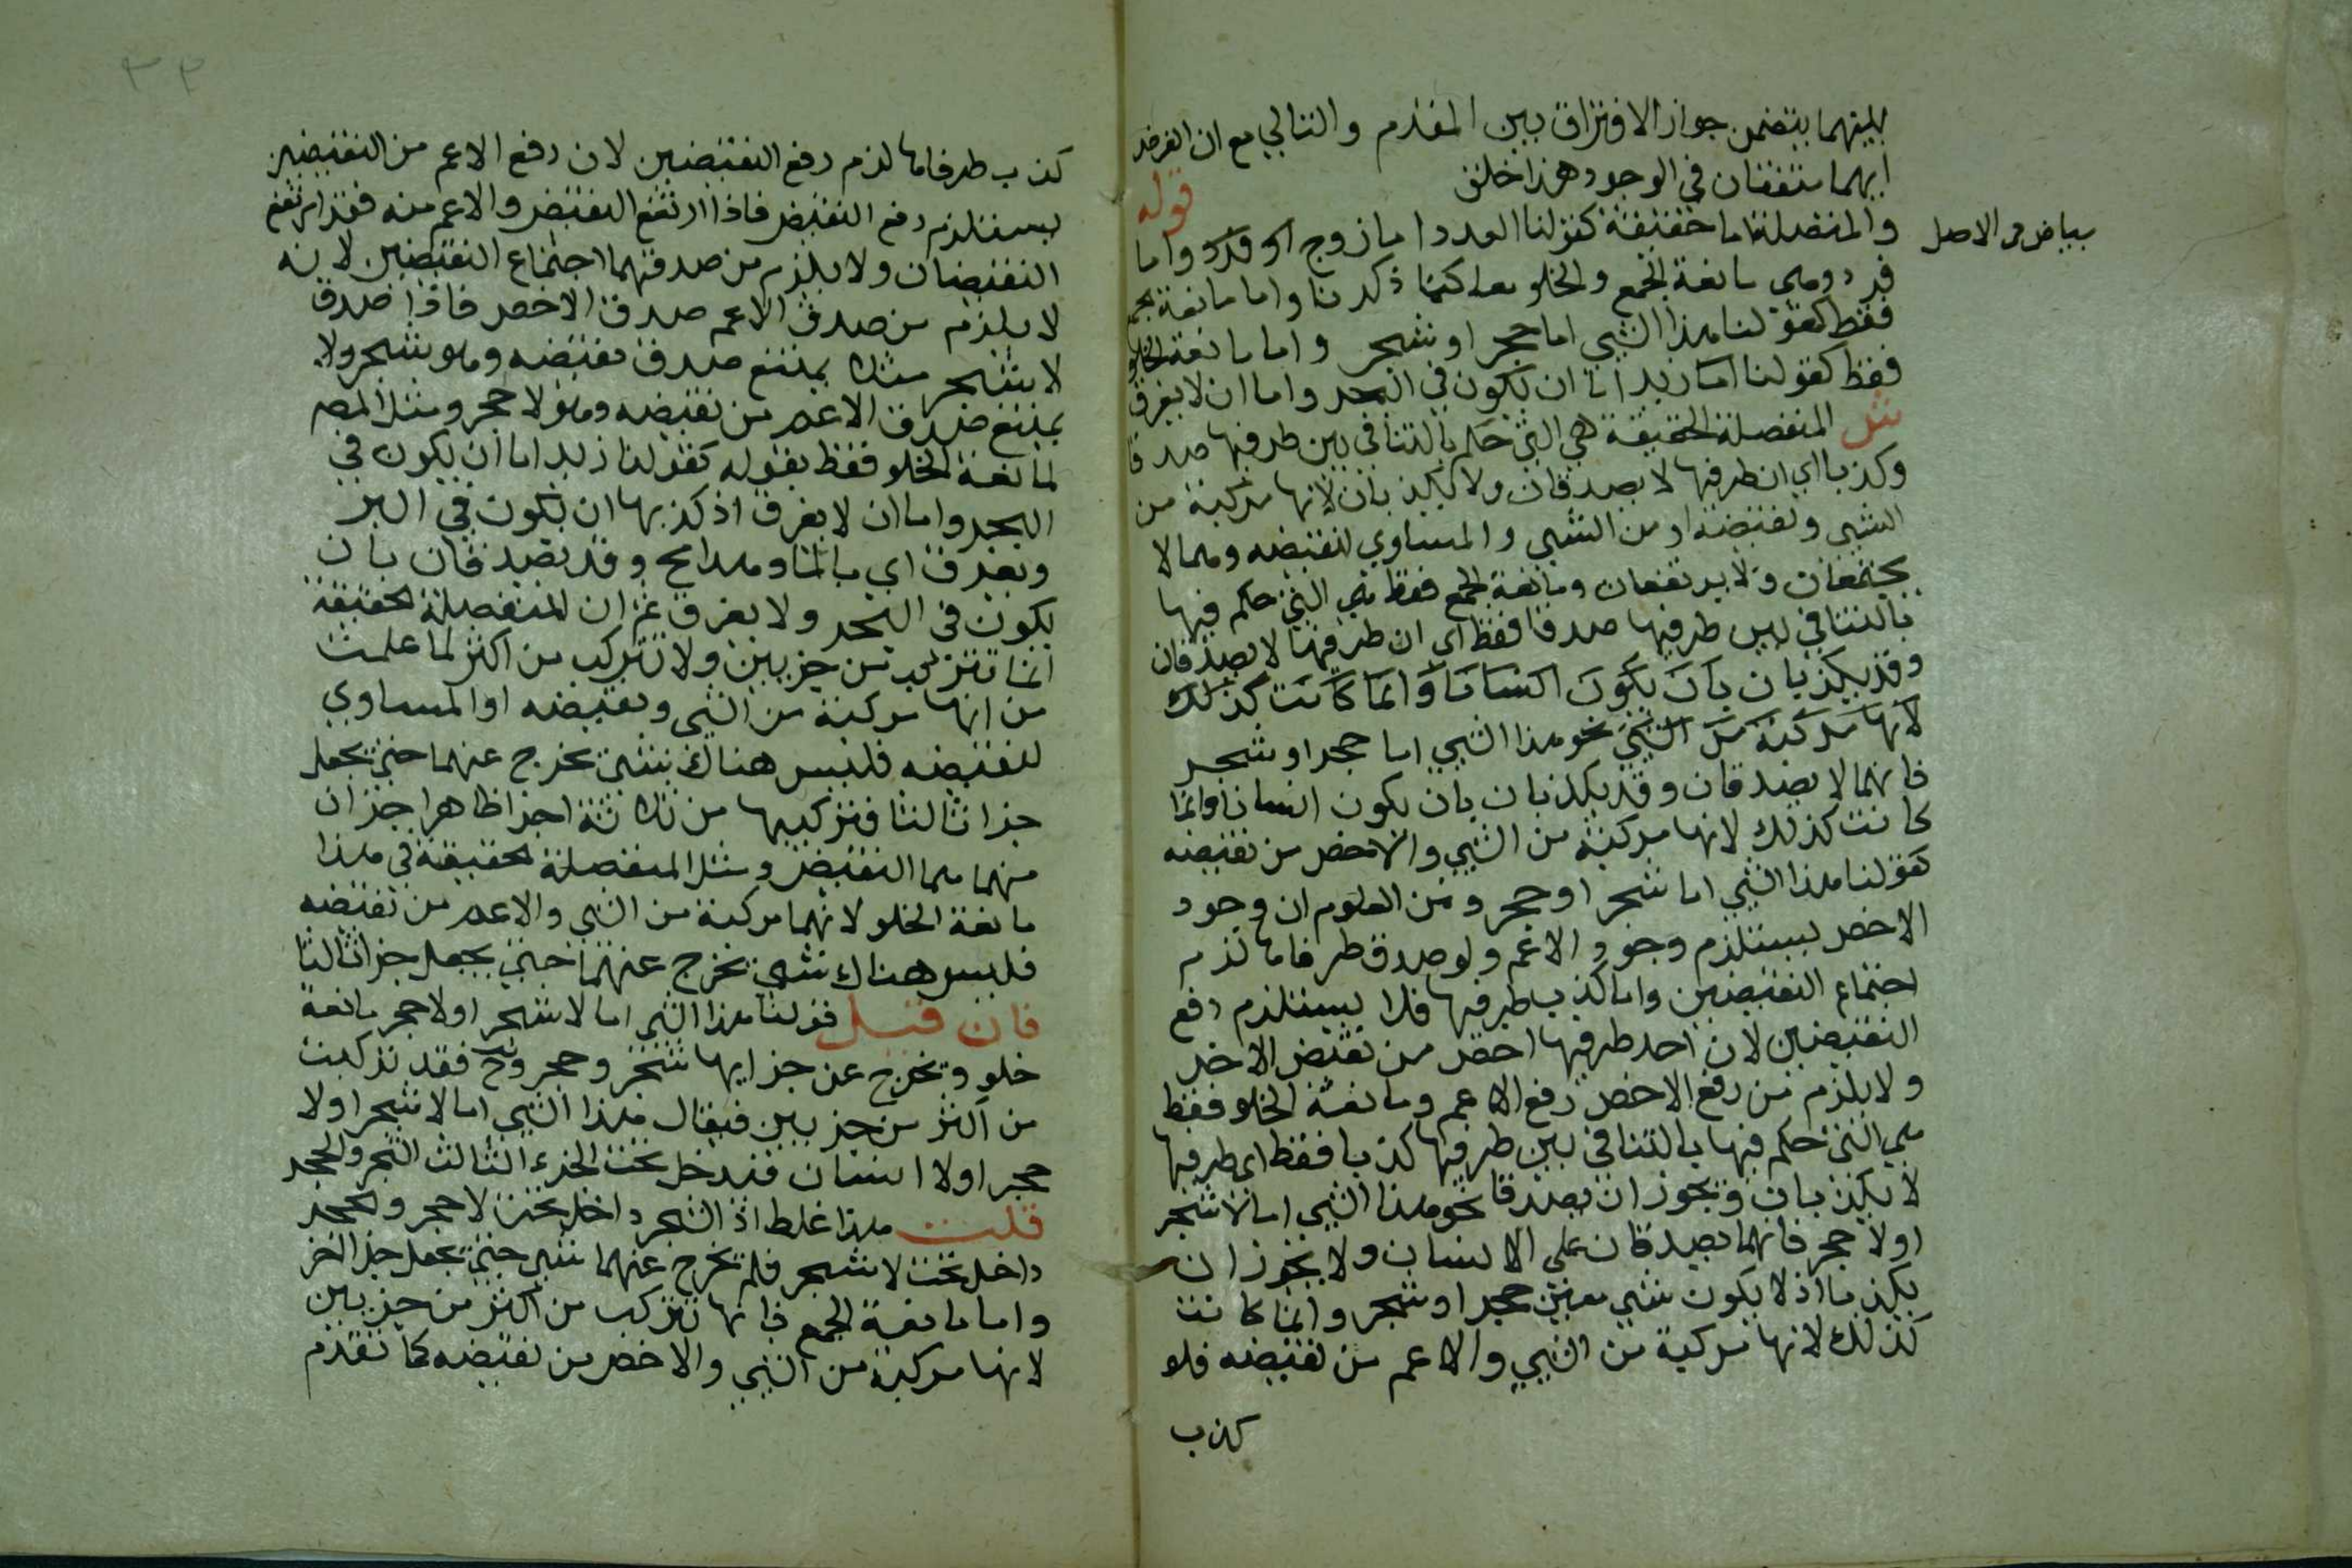 بينهما يتضمن جواز الافتراق بين المقدم والتالي مع ان الفرض
انهما متفقان في الوجود هذا خلف قوله
والمنفصلة اما حقيقة كقولنا العدد اما زوج او فرد واما
بياض من الاصل
فرد وهي مانعة الجمع والخلو معا كما ذكرنا واما مانعة جمع
فقط كقولنا هذا الشي اما حجر او شجر واما مانعة الخلو
فقط كقولنا اما زيد اما ان يكون في البحر واما ان لا يغرق
المنفصلة الحقيقة هي التي حكم بالتنافي بين طرفيها صدقا
وكذبا اي ان طرفيها لا يصدقان ولا يكذبان لانها مركبة من
الشي ونقيضه او من الشي والمساوي لنقيضه وهما لا
يجتمعان ولا يرتفعان ومانعة الجمع فقط هي التي حكم فيها
بالتنافي بين طرفيها صدقا فقط اي ان طرفيها لا يصدقان
وقد يكذبان بان يكون انسانا وانما كانت كذلك
لانها مركبة من الشي نحو هذا الشي اما حجر او شجر
فانهما لا يصدقان وقد يكذبان بان يكون انسانا وانما
كانت كذلك لانها مركبة من الشي والاخص من نقيضه
كقولنا هذا الشي اما شجر او حجر ومن المعلوم ان وجود
الاخص يستلزم وجود الاعم ولو صدق طرفاها لزم
اجتماع النقيضين واما كذب طرفيها فلا يستلزم رفع
النقيضين لان احد طرفيها اخص من نقيض الاخر
ولا يلزم من رفع الاخص رفع الاعم ومانعة الخلو فقط
هي التي حكم فيها بالتنافي بين طرفيها كذبا فقط اي طرفيها
لا يكذبان ويجوز ان يصدقا نحو هذا الشي اما لا شجر
او لا حجر فانهما يصدقان على الانسان ولا يجوز ان
يكذبا اذ لا يكون شي معين حجر او شجر وانما كانت
كذلك لانها مركبة من الشي والاعم من نقيضه فلو
كذب
٣٣
كذب طرفاها لزم رفع النقيضين لان رفع الاعم من النقيضين
يستلزم رفع النقيض فاذا ارتفع النقيض والاعم منه فقد ارتفع
النقيضان ولا يلزم من صدقهما اجتماع النقيضين لانه
لا يلزم من صدق الاعم صدق الاخص فاذا صدق
لا شجر مثلا يمتنع صدق نقيضه وهو شجر ولا
يمتنع صدق الاعم من نقيضه وهو لا حجر ومثل المص
لمانعة الخلو فقط بقوله كقولنا زيد اما ان يكون في
البحر واما ان لا يغرق اذ كذبها ان يكون في البر
ويغرق اي بالماء وهذا مح وقد يصدقان بان
يكون في البحر ولا يغرق ثم ان المنفصلة الحقيقة
انما تتركب من جزيين ولا تتركب من اكثر لما علمت
من انها مركبة من الشي ونقيضه او المساوي
لنقيضه فليس هناك شي يخرج عنهما حتى يجعل
جزا ثالثا فتركيبها من ثلاثة اجزا ظاهرا جزان
منهما هما النقيض ومثل المنفصلة الحقيقة في هذا
مانعة الخلو لانهما مركبة من الشي والاعم من نقيضه
فليس هناك شي يخرج عنهما حتى يجعل جزا ثالثا
فان قيل قولنا هذا الشي اما لا شجر او لا حجر مانعة
خلو ويخرج عن جزايها شجر وحجر وح فقد تركبت
من اكثر من جزيين فيقال هذا الشي اما لا شجر او لا
حجر او لا انسان فتدخل تحت الجزء الثالث الشجر والحجر
قلت هذا غلط اذ الشجر داخل تحت لا حجر والحجر
داخل تحت لا شجر فلم يخرج عنهما شي حتى يجعل جزا اخر
واما مانعة الجمع فانها تتركب من اكثر من جزيين
لانها مركبة من الشي والاخص من نقيضه كما تقدم